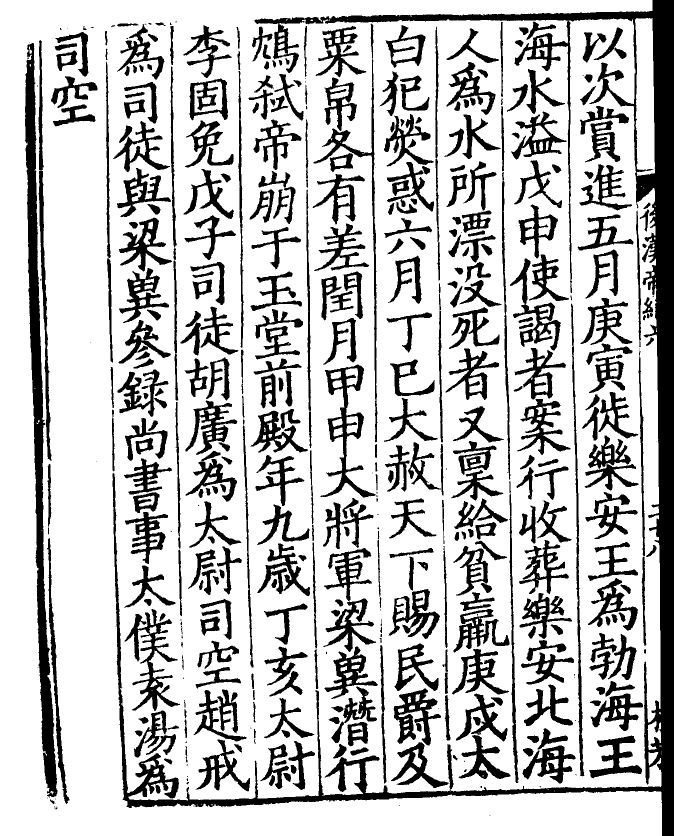 後漢帝紀六
以次賞進五月庚寅徙樂安王爲勃海王
海水溢戊申使謁者案行收葬樂安北海
人爲水所漂没死者又稟給貧羸庚戌太
白犯熒惑六月丁巳大赦天下賜民爵及
粟帛各有差閏月甲申大將軍梁兾潛行
鴆弑帝崩于玉堂前殿年九歳丁亥太尉
李固免戊子司徒胡廣爲太尉司空趙戒
爲司徒與梁兾叅録尚書事太僕袁湯爲
司空